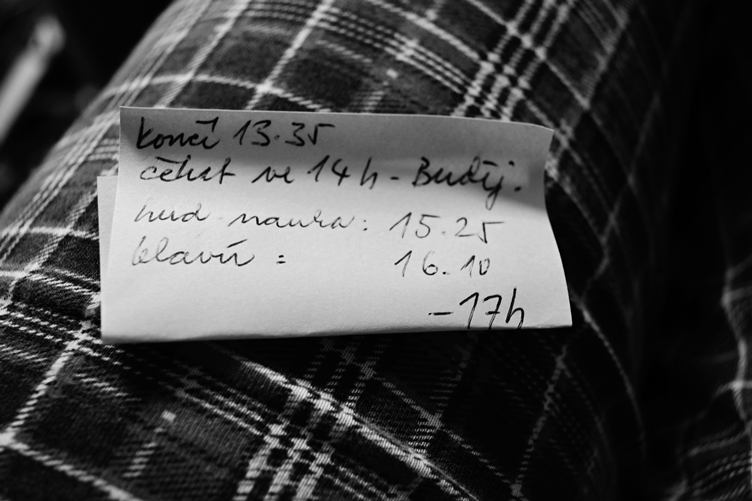 končí 13.35
čekat ve 14h - Buděj.
hud nauka: 15.25
klavír : 16.10
-17h